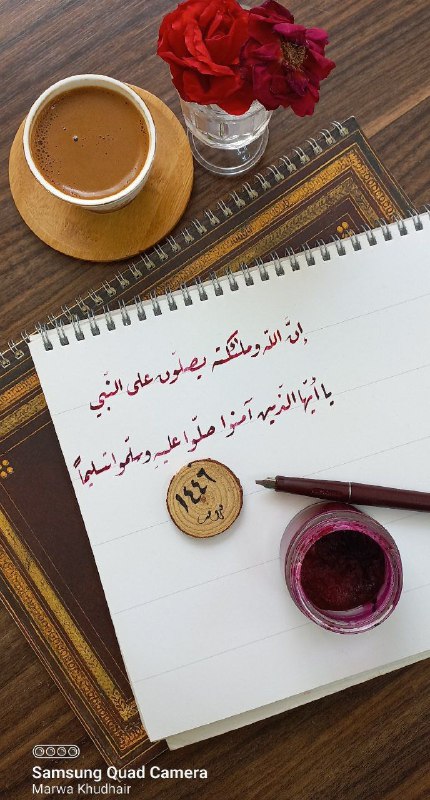 إنّ الله وملئكته يصلّون على النّبي
يا أيّها الذّين آمنوا صلّوا عليه وسلّموا تسليماً
١٤٤٦
Samsung Quad Camera
Marwa Khudhair